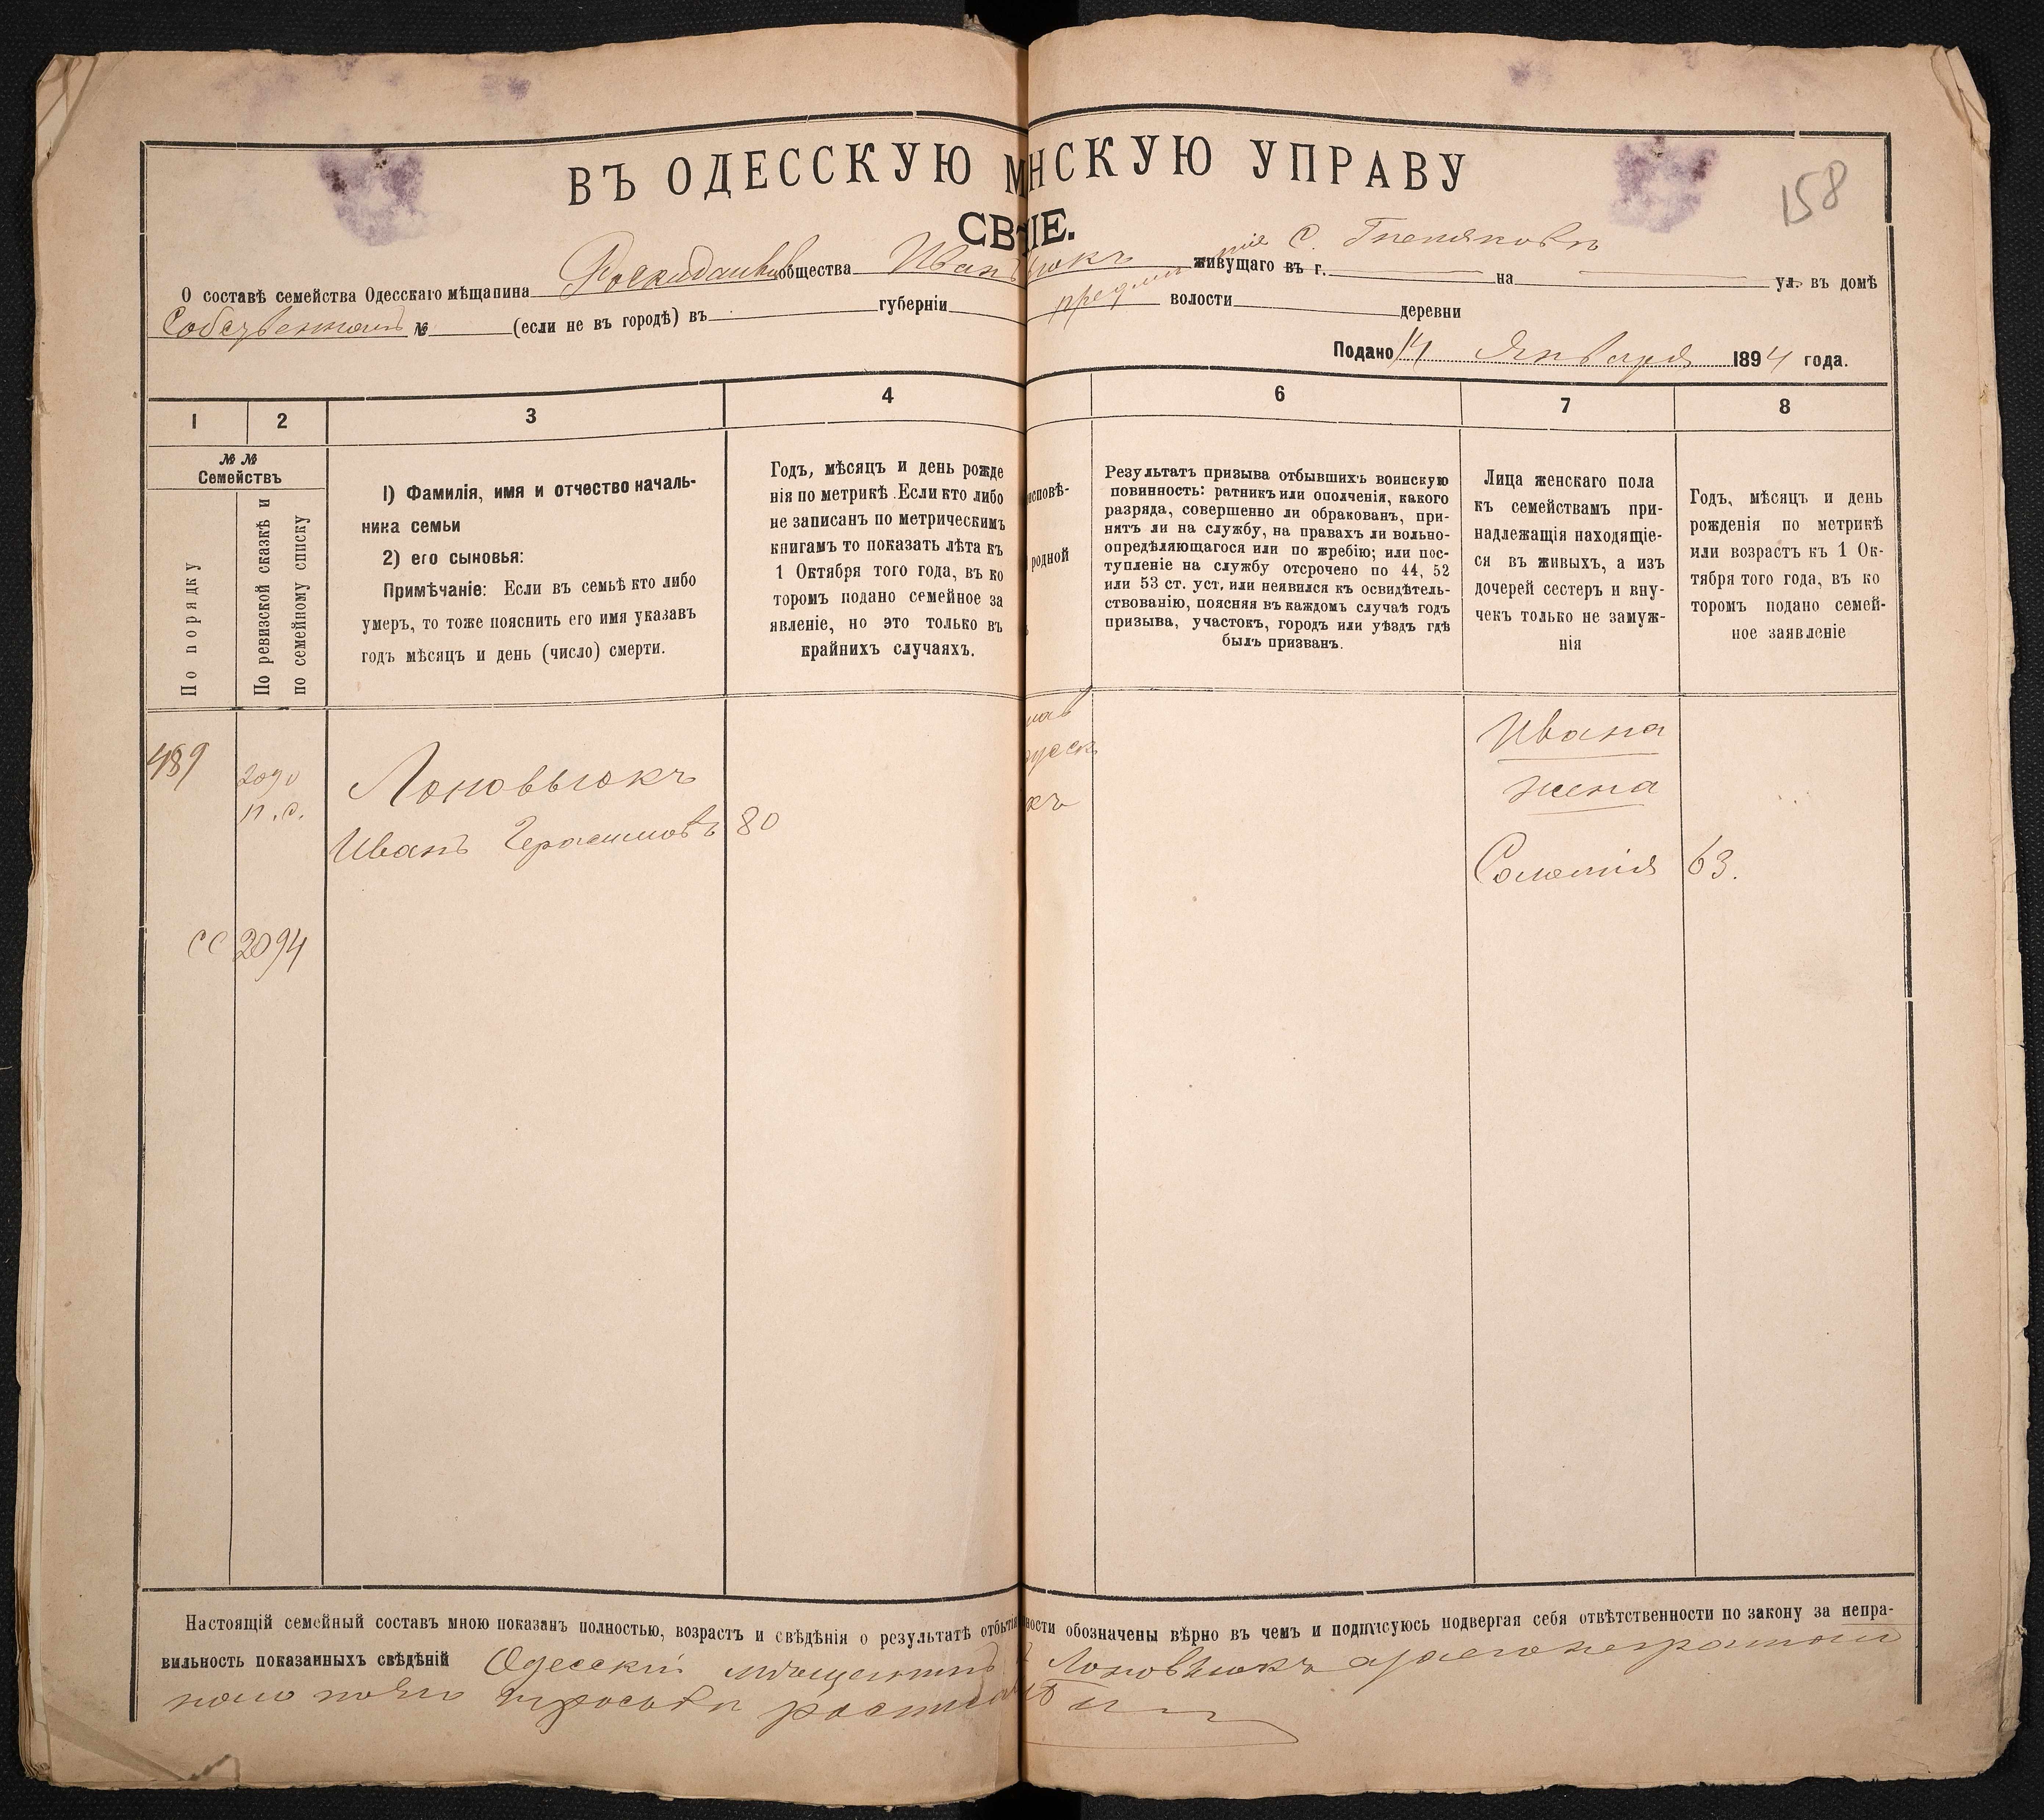 158
ВЪ ОДЕССКУЮ М НСКУЮ УПРАВУ
СВ НІЕ.
О составѣ семейства Одесскаго мѣщанина общества Иван юкъ живущаго въ г. С. на ул. въ домѣ
Собственномъ № (если не въ городѣ) въ губерніи волости деревни
Подано 14 Января 1894 года.
1 2 3 4 6 7 8
№ №
Семействъ
По порядку
По ревизской сказкѣ и
по семейному списку
1) Фамилія, имя и отчество началь-
ника семьи
2) его сыновья:
Примѣчаніе: Если въ семьѣ кто либо
умеръ, то тоже пояснить его имя указавъ
годъ мѣсяцъ и день (число) смерти.
Годъ, мѣсяцъ и день рожде
нія по метрикѣ. Если кто либо
не записанъ по метрическимъ
книгамъ то показать лѣта къ
1 Октября того года, въ ко
торомъ подано семейное за
явленіе, но это только въ
крайнихъ случаяхъ.
исповѣ-
родной
Результатъ призыва отбывшихъ воинскую
повинность: ратникъ или ополченія, какого
разряда, совершенно ли обракованъ, при-
нятъ ли на службу, на правахъ ли вольно-
опредѣляющагося или по жребію; или пос-
тупленіе на службу отсрочено по 44, 52
или 53 ст. уст. или неявился къ освидѣтель-
ствованію, поясняя въ каждомъ случаѣ годъ
призыва, участокъ, городъ или уѣздъ гдѣ
былъ призванъ.
Лица женскаго пола
къ семействамъ при-
надлежащія находящіе-
ся въ живыхъ, а изъ
дочерей сестеръ и вну-
чекъ только не замуж-
нія
Годъ, мѣсяцъ и день
рожденія по метрикѣ
или возрастъ къ 1 Ок-
тября того года, въ ко
торомъ подано семей-
ное заявленіе
489
2090
п. с.
Лоновьюкъ
Иванъ Герасимовъ 80
Ивана
жена
Соломія 63.
СС 2094
Настоящій семейный составъ мною показанъ полностью, возрастъ и свѣдѣнія о результатѣ отбытія ности обозначены вѣрно въ чемъ и подписуюсь подвергая себя отвѣтственности по закону за непра-
вильность показанныхъ свѣдѣній Одесскій мѣщанинъ Лоновьюкъ